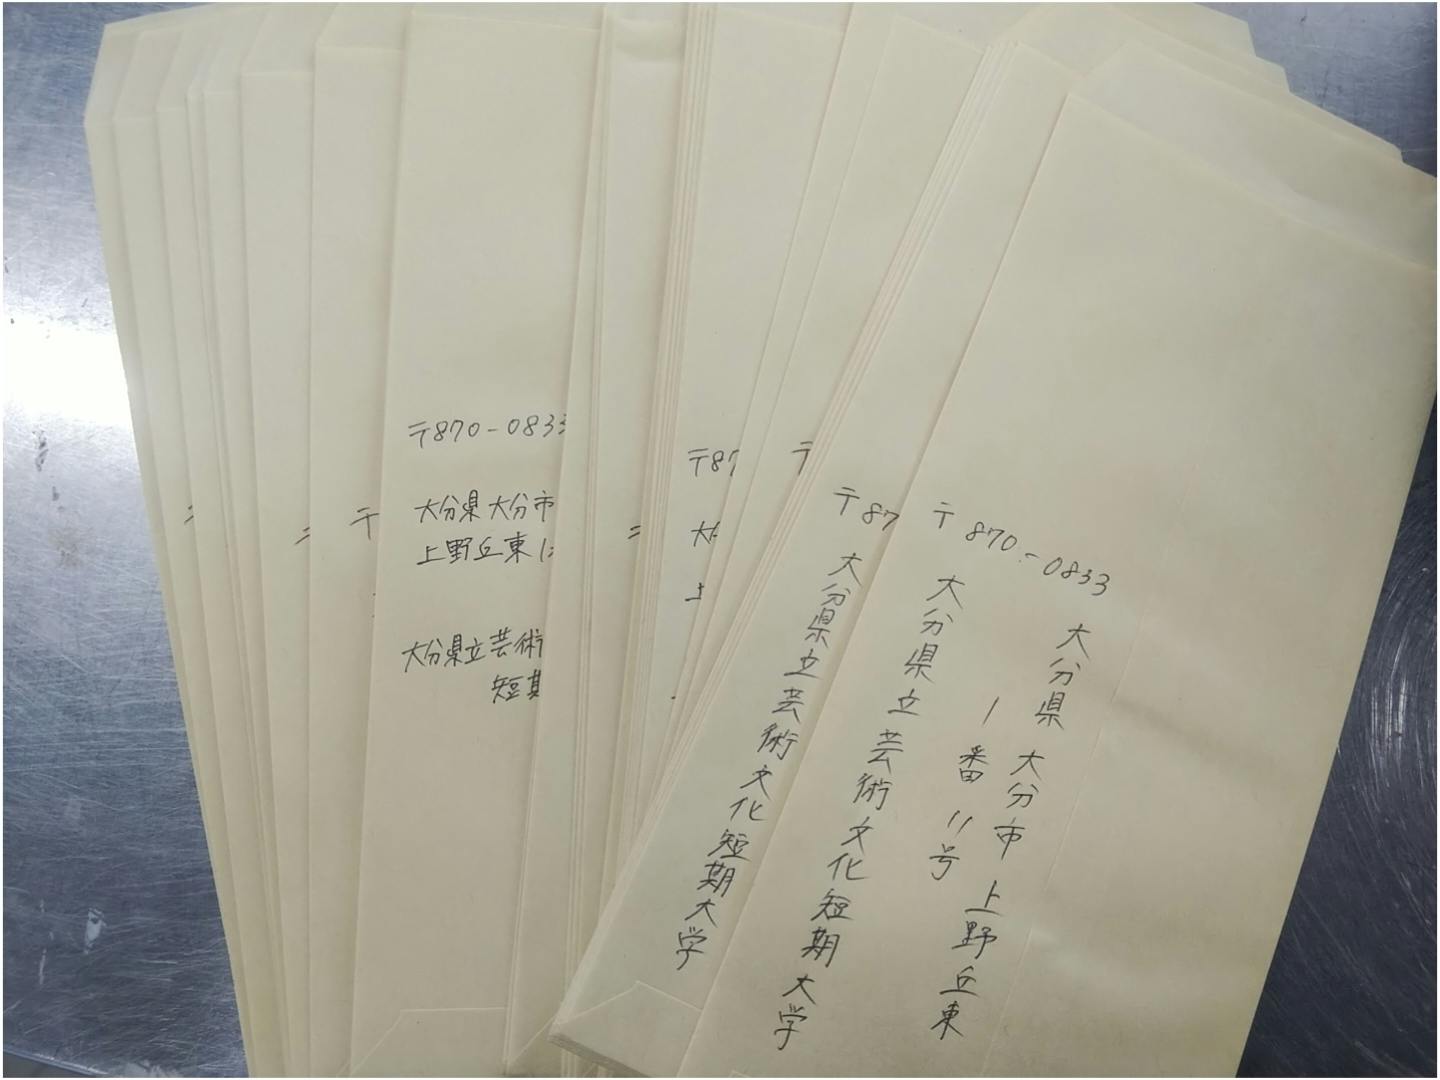 〒
〒870-0833
大分県大分市
上野丘東1
大分県立芸術
短期
〒87
大
上
〒
〒87
大分県立芸術文化短期大学
〒870-0833
大分県 大分市 上野丘東
1番11号
大分県立芸術文化短期大学